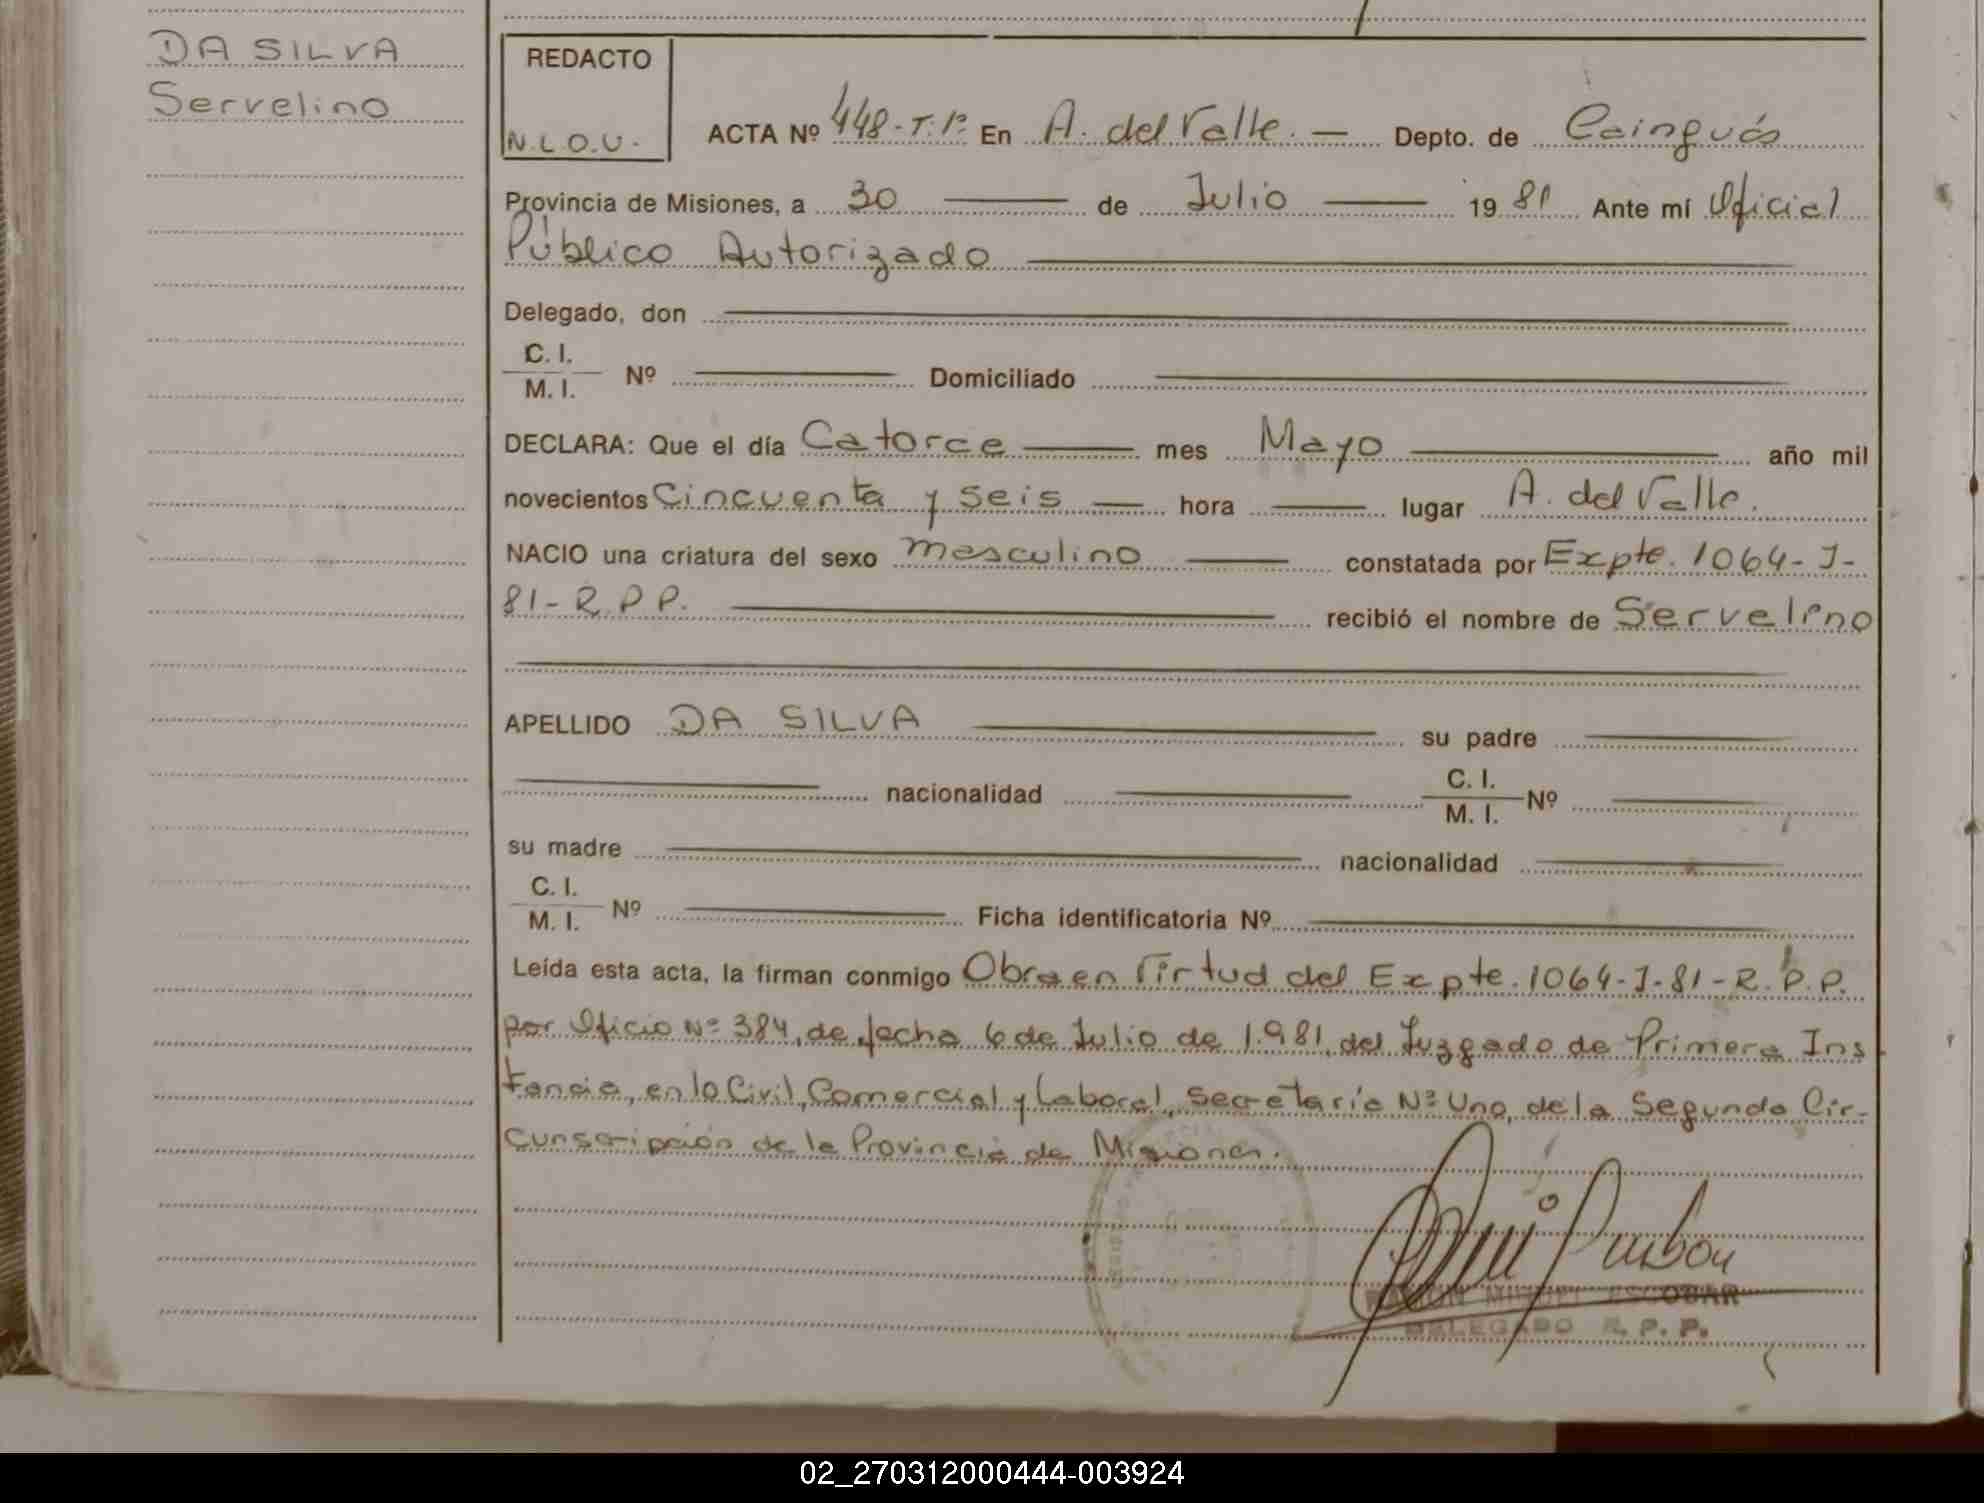 DA SILVA
Servelino
REDACTO
N.L.O.U.
ACTA Nº 448-T.1º En A. del Valle. — Depto. de Cainguás
Provincia de Misiones, a 30 — de Julio — 1981 Ante mí Oficial
Público Autorizado
Delegado, don
C. I.
M. I. Nº Domiciliado
DECLARA: Que el día Catorce — mes Mayo — año mil
novecientos Cincuenta y Seis — hora — lugar A. del Valle.
NACIO una criatura del sexo masculino — constatada por Expte. 1064-J-
81-R.P.P. — recibió el nombre de Servelino
APELLIDO DA SILVA — su padre
nacionalidad C. I.
M. I. Nº
su madre nacionalidad
C. I.
M. I. Nº Ficha identificatoria Nº
Leída esta acta, la firman conmigo Obra en Virtud del Expte. 1064-J-81-R.P.P.
por Oficio Nº 384, de fecha 6 de Julio de 1.981, del Juzgado de Primera Ins
tancia, en lo Civil, Comercial y Laboral, Secretaría Nº Uno, de la Segunda Cir-
cunscripción de la Provincia de Misiones.
RAMON MIGUEL ESCOBAR
DELEGADO R. P. P.
02_270312000444-003924